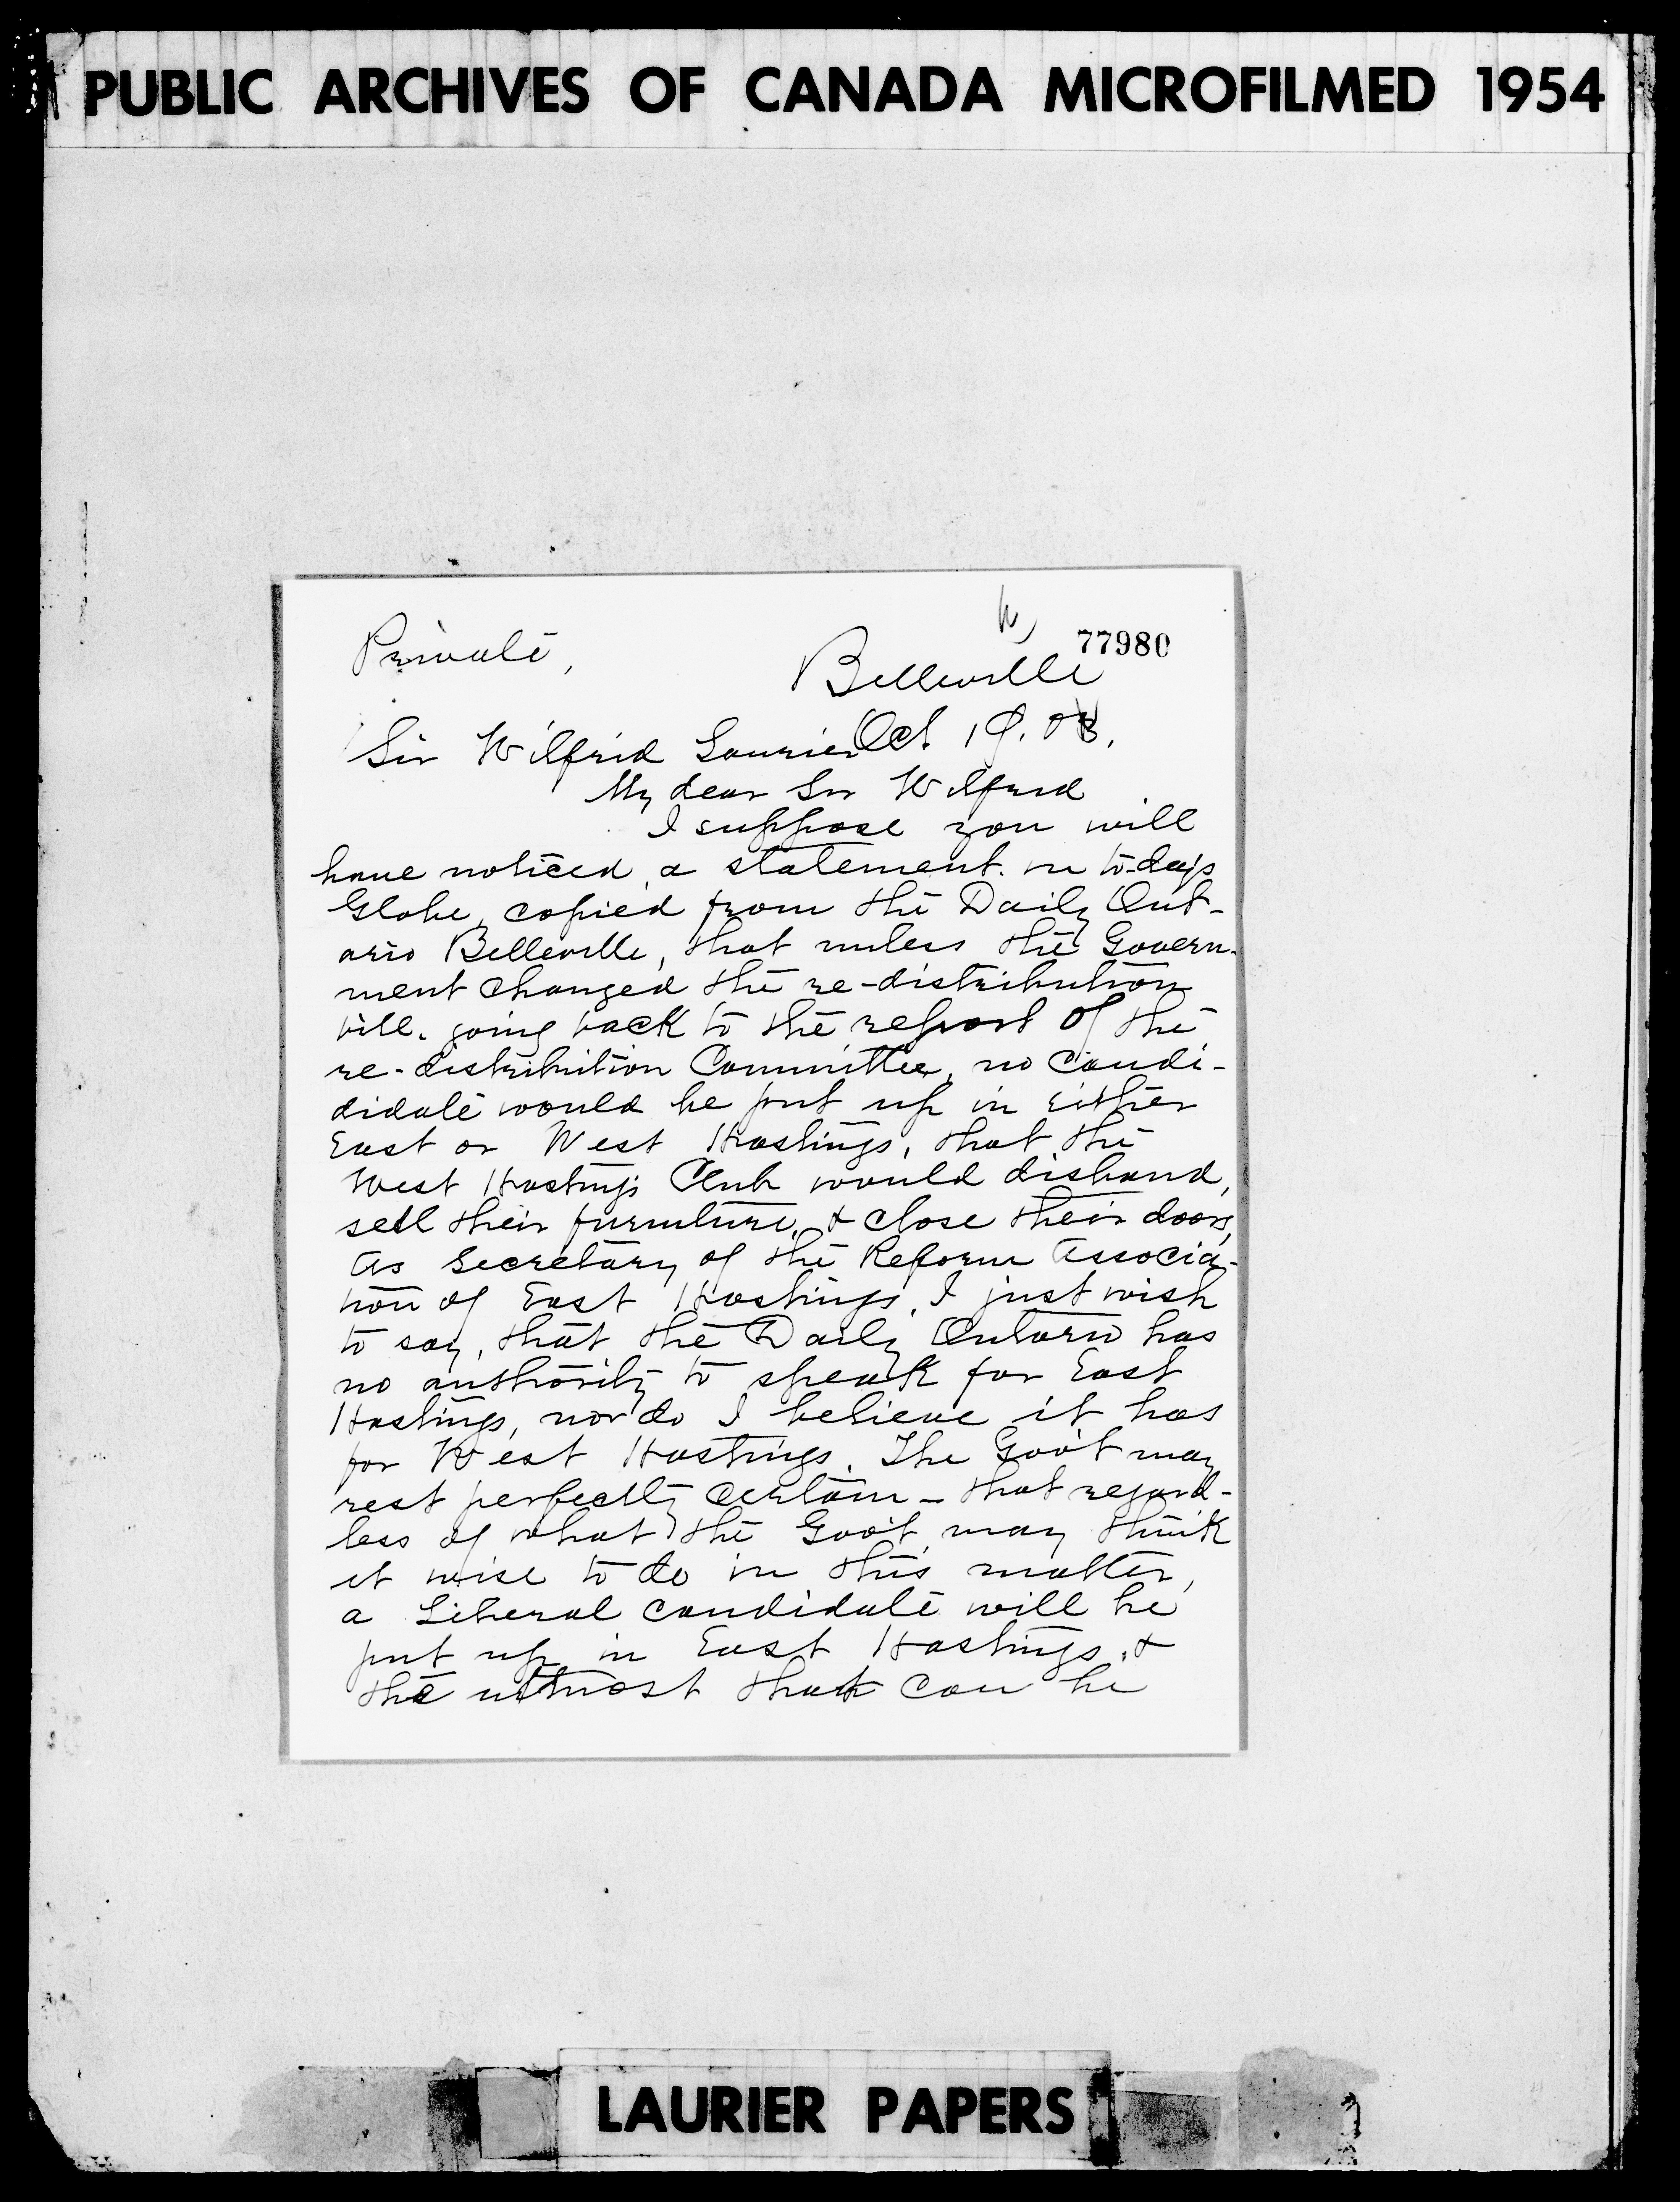 PUBLIC ARCHIVES OF CANADA MICROFILMED 1954
77980
Private,
Belleville
Oct 19. 03.
Sir Wilfrid Laurier
My dear Sir Wilfrid
I suppose you will
have noticed, a statement. in to-days
Globe, copied from the Daily Ont-
ario Belleville, that unless the Govern-
ment changed the re-distribution
bill. going back to the report of the
re-distribution Committee, no candi-
didate would be put up in either
East or West Hastings, that the
West Hastings Club would disband,
sell their furniture, & close their doors,
As Secretary of the Reform Associa-
tion of East Hastings, I just wish
to say, that the Daily Ontario has
no authority to speak for East
Hastings, nor do I believe it has
for West Hastings. The Gov't may
rest perfectly certain - that regard-
less of what the Gov't may think
it wise to do in this matter,
a Liberal candidate will be
put up in East Hastings, &
the utmost that can be
LAURIER PAPERS